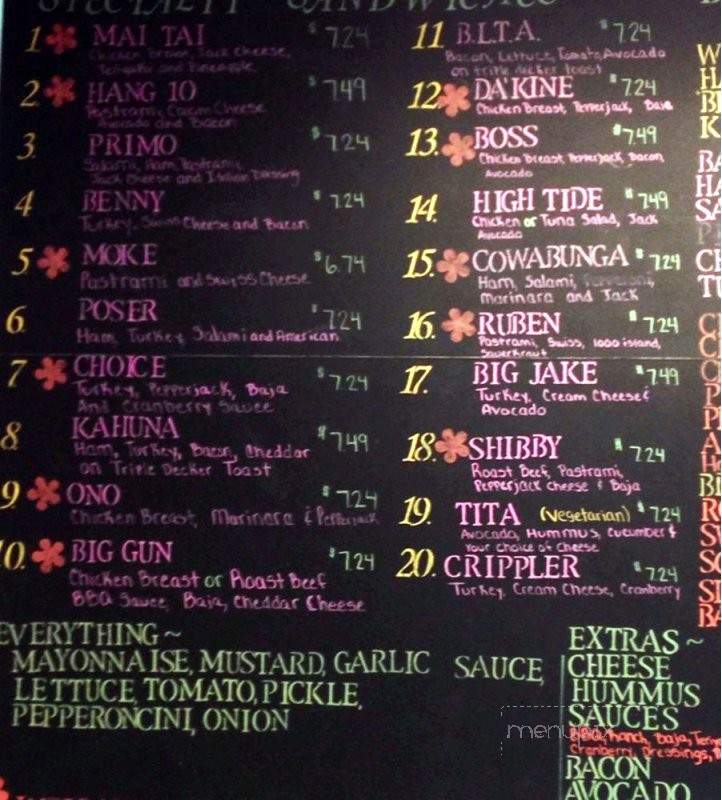 SPECIALTY SANDWICHES
1 MAI TAI $7.24
Chicken Breast, Jack Cheese,
Teriyaki and Pineapple
2 HANG 10 $7.49
Pastrami, Cream Cheese
Avocado and Bacon
3. PRIMO $7.24
Salami, Ham, Pastrami,
Jack Cheese and Italian Dressing
4 BENNY $7.24
Turkey, Swiss Cheese and Bacon
5 MOKE $6.74
Pastrami and Swiss Cheese
6. POSER $7.24
Ham, Turkey, Salami and American
7 CHOICE $7.24
Turkey, Pepperjack, Baja
And Cranberry Sauce
8 KAHUNA $7.49
Ham, Turkey, Bacon, Cheddar
on Triple Decker Toast
9 ONO $7.24
Chicken Breast, Marinara & Pepperjack
10. BIG GUN $7.24
Chicken Breast or Roast Beef
BBQ Sauce, Baja, Cheddar Cheese
11 B.L.T.A. $7.24
Bacon, Lettuce, Tomato, Avocado
on triple decker toast
12. DA KINE $7.24
Chicken Breast, Pepperjack, Baja
13. BOSS $7.49
Chicken Breast, Pepperjack, Bacon
Avocado
14. HIGH TIDE $7.49
Chicken or Tuna Salad, Jack
Avocado
15. COWABUNGA $7.24
Ham, Salami, Pepperoni,
Marinara and Jack
16. RUBEN $7.24
Pastrami, Swiss, 1000 island,
Sauerkraut
17. BIG JAKE $7.49
Turkey, Cream Cheese &
Avocado
18. SHIBBY $7.24
Roast Beef, Pastrami,
Pepperjack Cheese & Baja
19. TITA (vegetarian) $7.24
Avocado, Hummus, Cucumber &
Your choice of Cheese
20. CRIPPLER $7.24
Turkey, Cream Cheese, Cranberry
EVERYTHING ~
MAYONNAISE, MUSTARD, GARLIC SAUCE,
LETTUCE, TOMATO, PICKLE,
PEPPERONCINI, ONION
EXTRAS ~
CHEESE
HUMMUS
SAUCES
Ranch, Baja,
Cranberry, Dressings,
BACON
AVOCADO